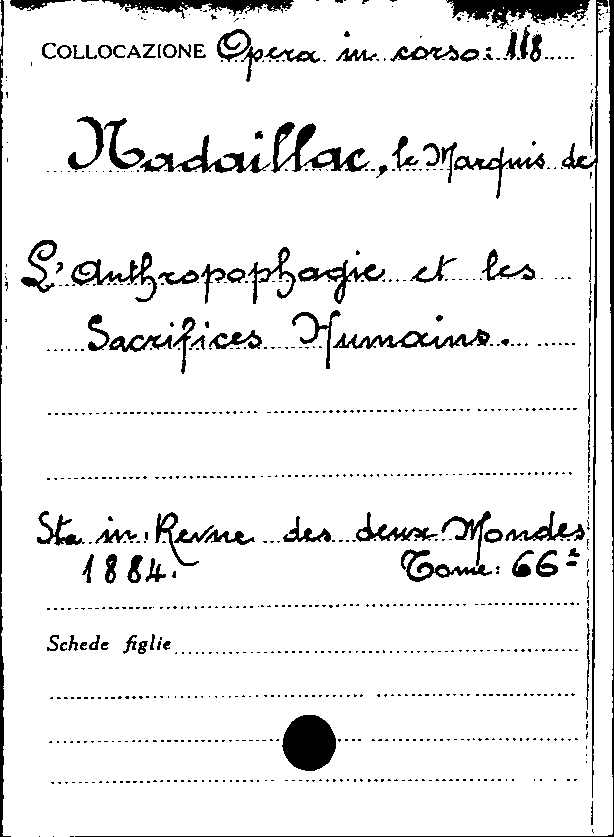 COLLOCAZIONE Opera in corso: 118
Nadaillac, le Marquis de
L'Anthropophagie et les
Sacrifices Humains.
Sta in: Revue des deux Mondes
1884. Tome: 66º
Schede figlie